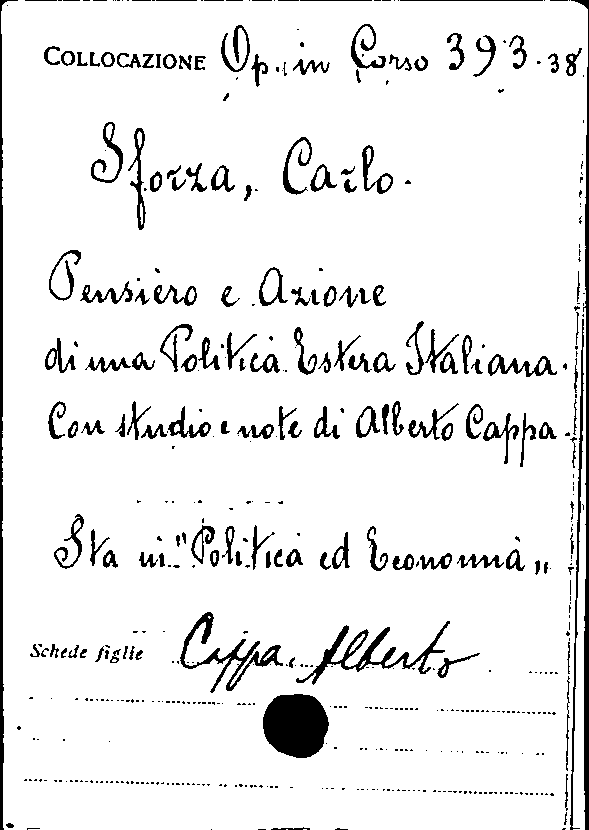 COLLOCAZIONE Op. in Corso 393.38
Sforza, Carlo.
Pensiero e Azione
di una Politica Estera Italiana.
Con studio e note di Alberto Cappa.
Sta in "Politica ed Economia„
Schede figlie Cappa, Alberto